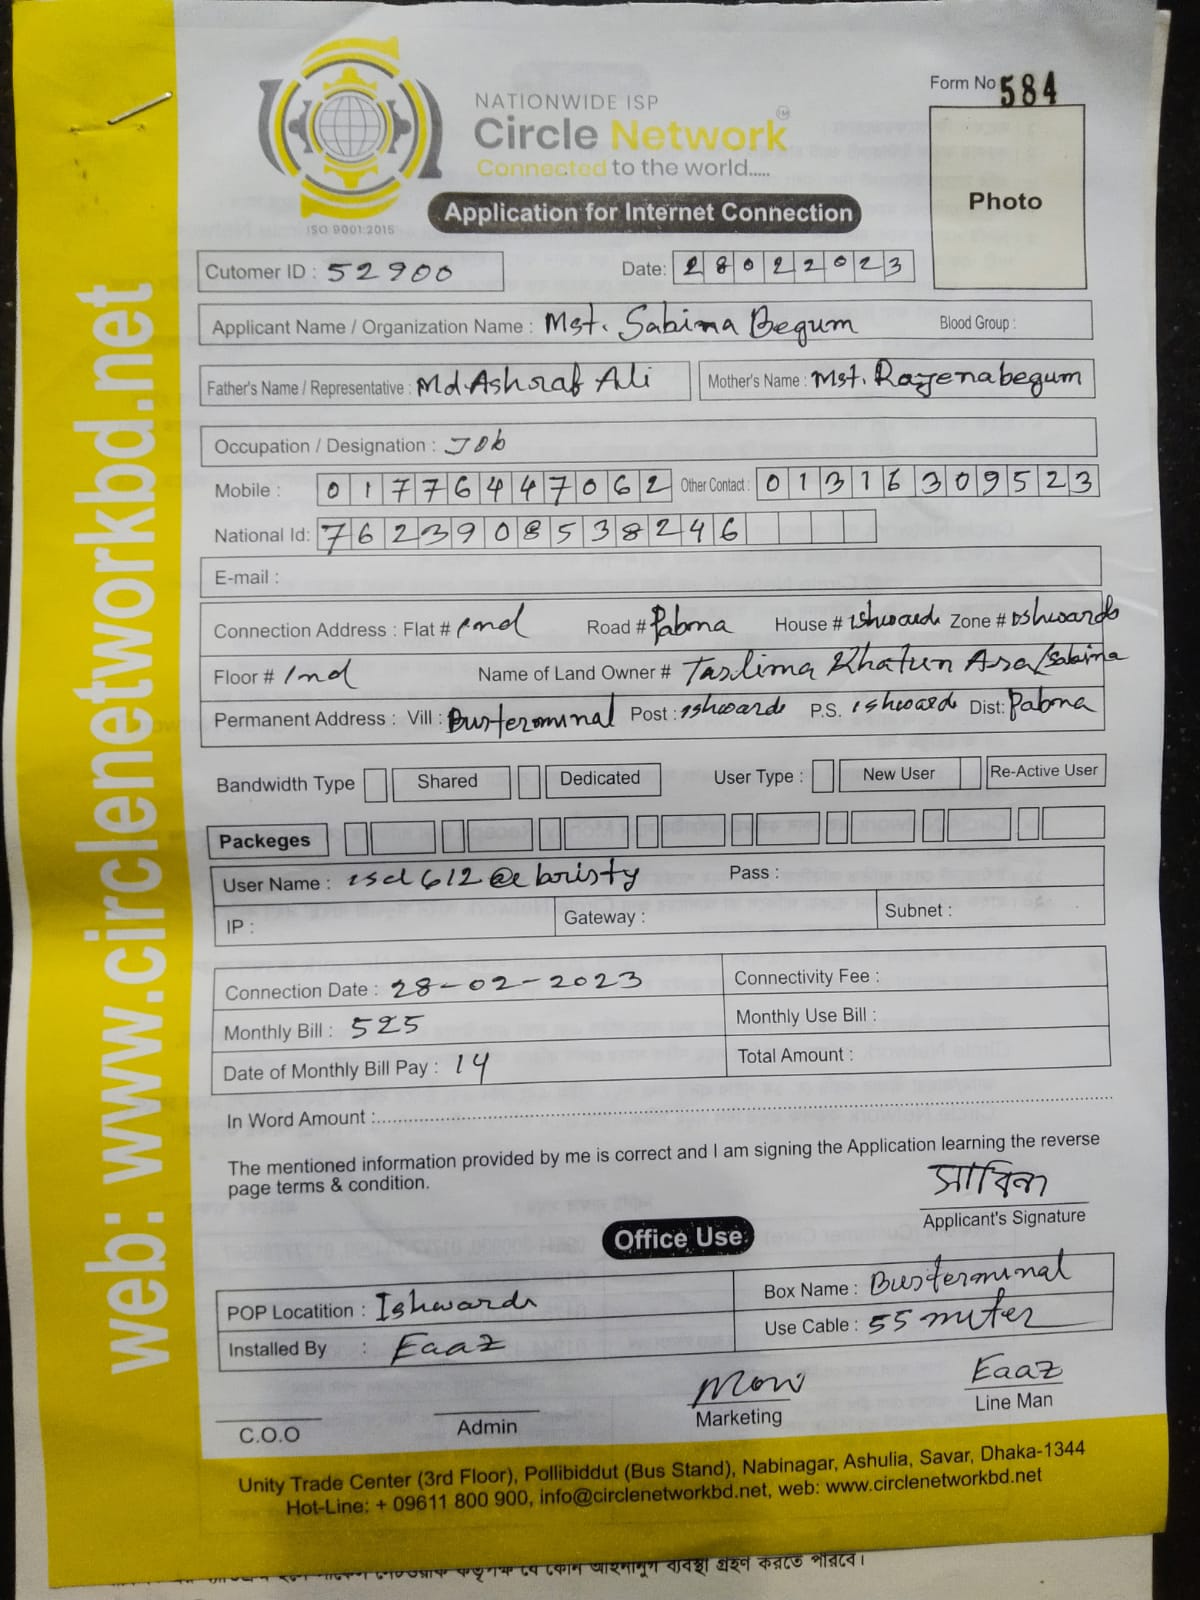 Form No 584
NATIONWIDE ISP
Circle Network
Connected to the world.....
ISO 9001:2015
Application for Internet Connection
Photo
web: www.circlenetworkbd.net
Cutomer ID : 52900
Date: 28022023
Applicant Name / Organization Name : Mst. Sabina Begum Blood Group :
Father's Name / Representative : Md Ashraf Ali Mother's Name : Mst. Rozenabegum
Occupation / Designation : Job
Mobile : 01776447062 Other Contact : 01316309523
National Id: 7623908538246
E-mail :
Connection Address : Flat # Road # Pabna House # Ishwardi Zone # Ishwardi
Floor # Name of Land Owner # Taslima Khatun Ara/Sabina
Permanent Address : Vill : Busterminal Post : Ishwardi P.S. Ishwardi Dist: Pabna
Bandwidth Type Shared Dedicated User Type : New User Re-Active User
Packeges
User Name : isd612@ebristy Pass :
IP : Gateway : Subnet :
Connection Date : 28-02-2023 Connectivity Fee :
Monthly Bill : 525 Monthly Use Bill :
Date of Monthly Bill Pay : 14 Total Amount :
In Word Amount :
The mentioned information provided by me is correct and I am signing the Application learning the reverse
page terms & condition.
সাবিনা
Applicant's Signature
Office Use
POP Locatition : Ishwardi Box Name : Busterminal
Installed By : Eaaz Use Cable : 55 miter
Eaaz
C.O.O Admin Marketing Line Man
Unity Trade Center (3rd Floor), Pollibiddut (Bus Stand), Nabinagar, Ashulia, Savar, Dhaka-1344
Hot-Line: + 09611 800 900, info@circlenetworkbd.net, web: www.circlenetworkbd.net
ব্যবস্থা গ্রহণ করতে পারবে।